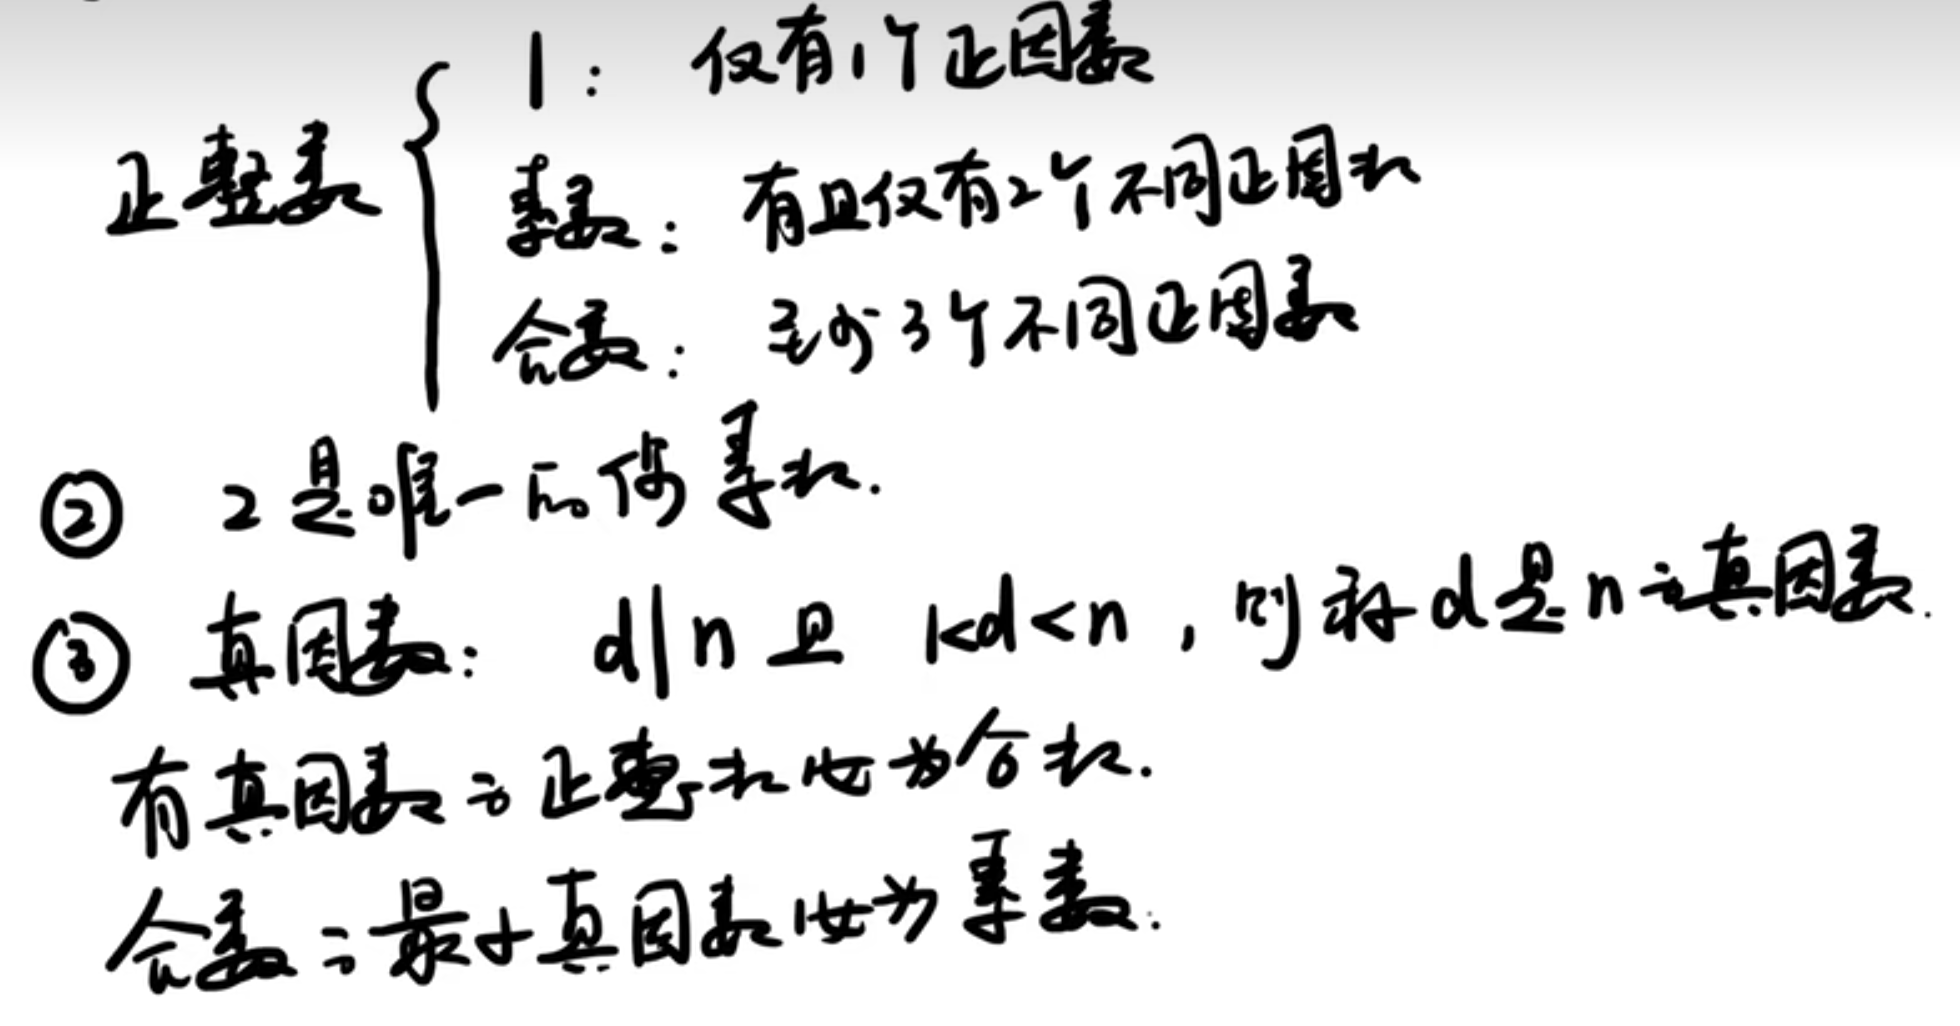 1: 仅有1个正因数
正整数
素数: 有且仅有2个不同正因数
合数: 至少3个不同正因数
② 2是唯一的偶素数.
③ 真因数: d|n 且 1<d<n, 则称d是n的真因数.
有真因数的正整数必为合数.
合数的最小真因数必为素数.